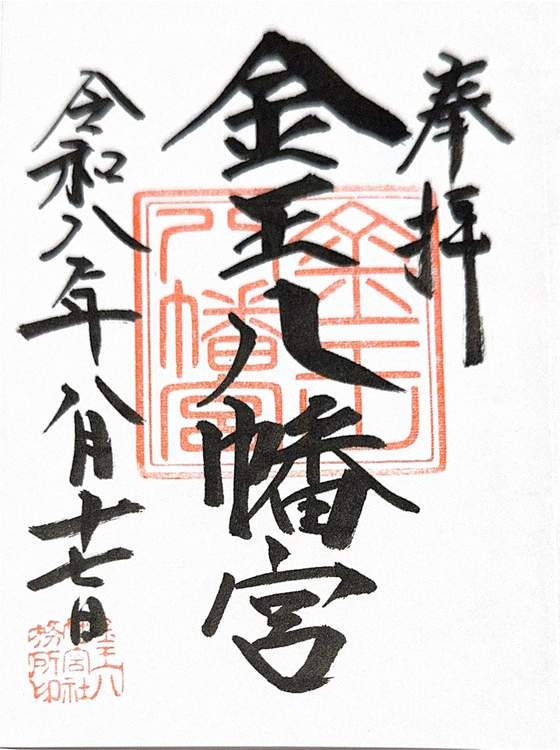 奉拝
金王八幡宮
令和八年八月十七日
金王八幡宮
金王八幡宮社務所印